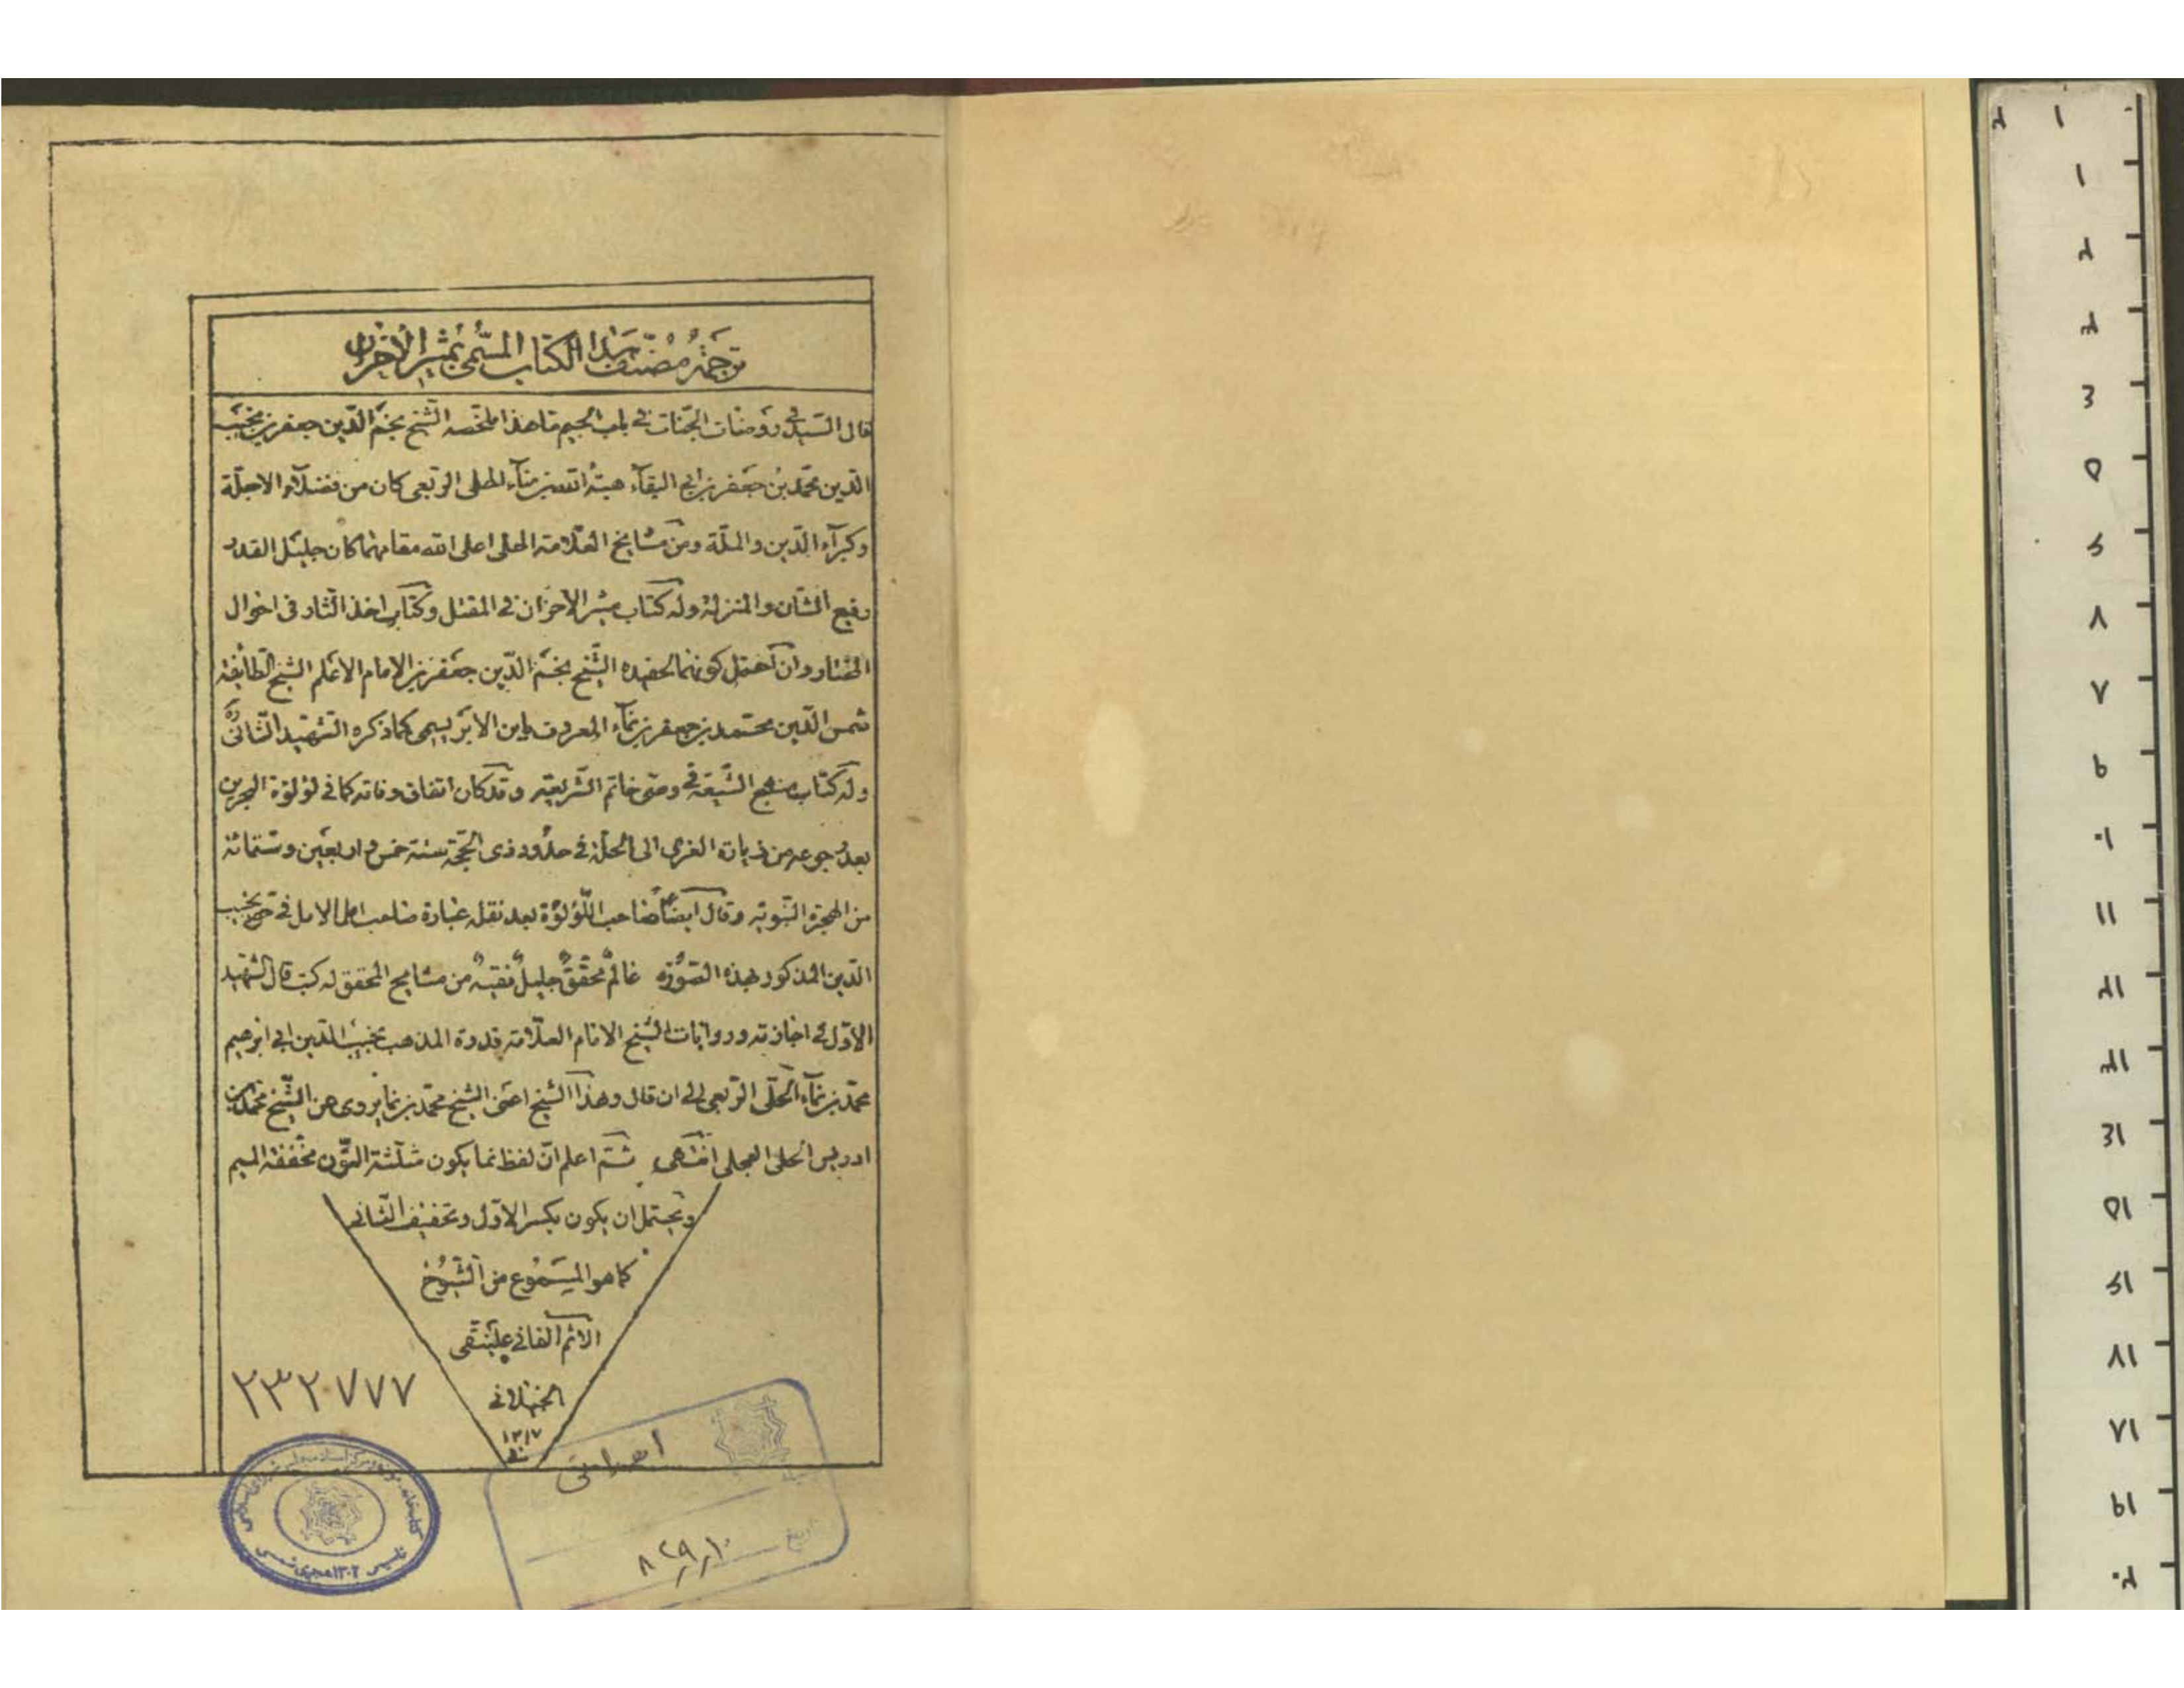 ترجمة مصنف هذا الكتاب المسمى بمثير الأحزان
قال السيد في روضات الجنات في باب الجيم ما هذا ملخصه الشيخ نجم الدين جعفر بن نجيب
الدين محمد بن جعفر بن ابي البقآء هبة الله بن نمآء الحلى الربعى كان من فضلآء الاجلة
وكبرآء الدين والملة ومن مشايخ العلامة الحلى اعلى الله مقامهما كان جليل القدر
رفيع الشان والمنزلة وله كتاب مثير الاحزان في المقتل وكتاب اخذ الثار فى احوال
المختار وان احتمل كونهما لحفيده الشيخ نجم الدين جعفر بن الامام الاعلم الشيخ الطايفة
شمس الدين محمد بن جعفر بن نمآء المعروف بابن الابريسمى كما ذكره الشهيد الثانى ره
وله كتاب منهج الشيعة في وصى خاتم الشريعة وقد كان اتفاق وفاته كما في لؤلؤة البحرين
بعد رجوعه من زيارة الغرى الى الحلة في حدود ذى الحجة سنة خمس واربعين وستمائة
من الهجرة النبوية وقال ايضا صاحب اللؤلؤة بعد نقله عبارة صاحب امل الامل في حق نجيب
الدين المذكور بهذه الصورة عالم محقق جليل فقيه من مشايخ المحقق له كتب قال الشهيد
الاول في اجازته وروايات الشيخ الامام العلامة قدوة المذهب نجيب الدين ابي ابرهيم
محمد بن نمآء الحلى الربعى الى ان قال وهذا الشيخ اعنى الشيخ محمد بن نما يروى عن الشيخ محمد بن
ادريس الحلى العجلى انتهى ثم اعلم ان لفظ نما يكون مثلثة النون مخففة الميم
ويحتمل ان يكون بكسر الاول وتخفيف الثانى
كما هو المسموع من الشيوخ
الاثم الفانى علينقى
١٣١٧
٢٣٢٠٧٧٧
اهدائى
تاريخ ٨٢٩٫١٠
تاسيس ١٣٠٢ هجرى شمسى
١
٢
٣
٤
٥
٦
٧
٨
٩
١٠
١١
١٢
١٣
١٤
١٥
١٦
١٧
١٨
١٩
٢٠